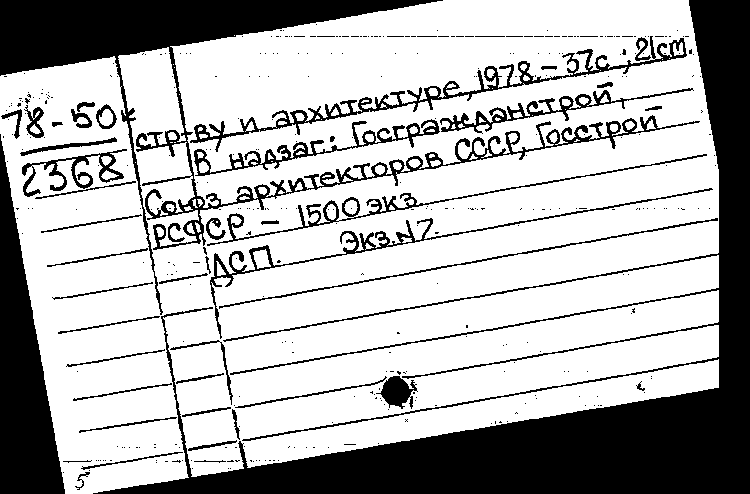 78-50к
2368
стр-ву и архитектуре, 1978.- 37с ; 21см.
В надзаг.: Госгражданстрой,
Союз архитекторов СССР, Госстрой
РСФСР. - 1500 экз.
ДСП. Экз.N7.
5